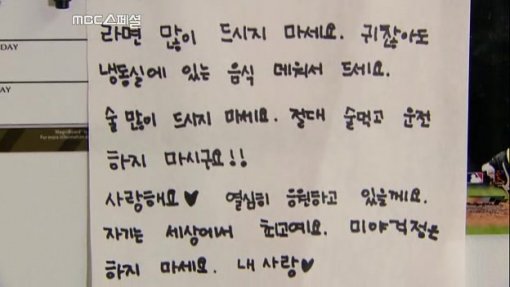 MBC스페셜
라면 많이 드시지 마세요. 귀찮아도
냉동실에 있는 음식 데워서 드세요.
술 많이 드시지 마세요. 절대 술먹고 운전
하지 마시구요!!
사랑해요♥ 열심히 응원하고 있을께요.
자기는 세상에서 최고예요. 미야걱정은
하지 마세요. 내 사랑♥
DAY
AY